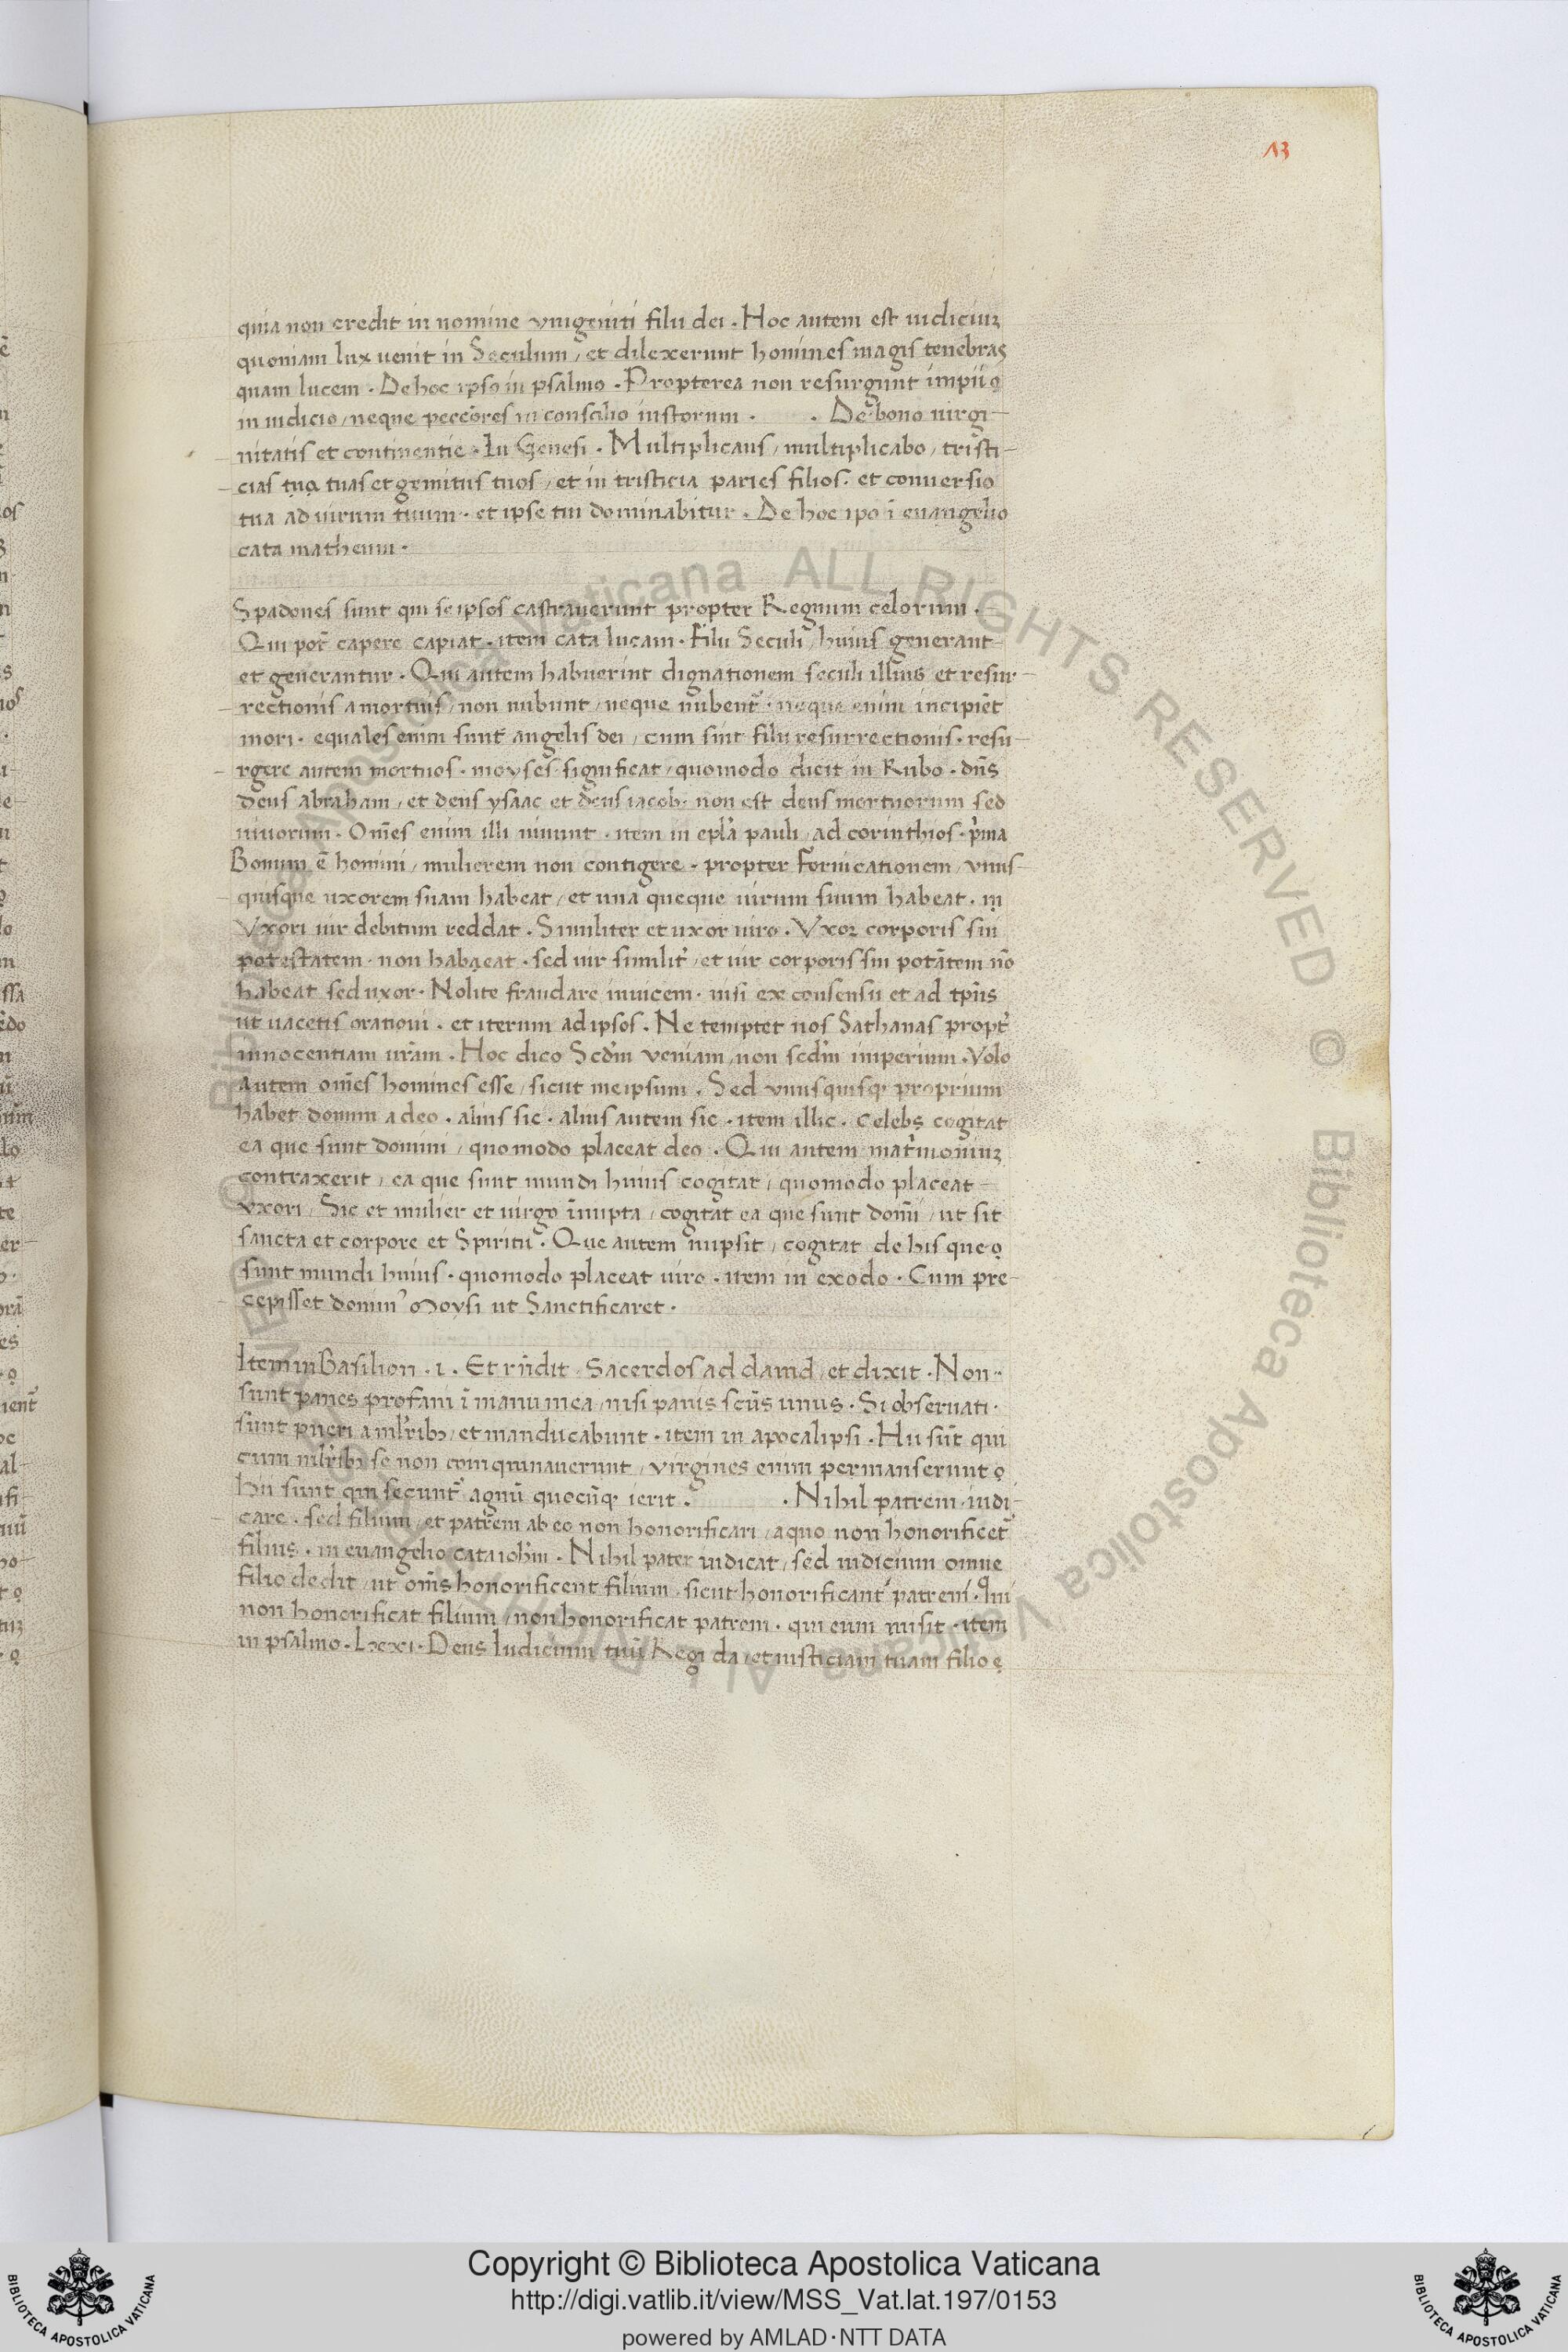 13
quia non credit in nomine vnigeniti filii dei . Hoc autem est iudiciuʒ
quoniam lux uenit in Seculum / et dilexerunt homines magis tenebras
quam lucem . De hoc ipso in psalmo . Propterea non resurgunt impii
in iudicio / neque peccōres in consilio iustorum . . De bono uirgi-
nitatis et continentie . In Genesi . Multiplicans / multiplicabo / tristi-
cias tuas et gemitus tuos / et in tristicia paries filios . et conuersio
tua ad uirum tuum . et ipse tui dominabitur . De hoc ipo ī euangelio
cata matheum .
Spadones sunt qui se ipsos castrauerunt propter Regnum celorum .
Qui pot̄ capere capiat . item cata lucam . Filii Seculi huius generant
et generantur . Qui autem habuerint dignationem seculi illius et resur-
rectionis a mortuis / non nubunt / neque nubent᷑ . neque enim incipiēt
mori . equales enim sunt angelis dei / cum sint filii resurrectionis . resu-
rgere autem mortuos . moyses significat / quomodo dicit in Rubo . dn̄s
deus abraham / et deus ysaac et deus iacob . non est deus mortuorum sed
uiuorum . Om̄es enim illi uiuunt . item in epl̄a pauli / ad corinthios . p̓ma
Bonum ē homini / mulierem non contigere . propter Fornicationem / vnus-
quisque uxorem suam habeat / et una queque uirum suum habeat .
Vxori uir debitum reddat . Similiter et uxor uiro . Vxor corporis sui
potestatem . non habeat . sed uir similit̓ / et uir corporis sui potātem nō
habeat sed uxor . Nolite fraudare inuicem . nisi ex consensu et ad tp̄us
ut uacetis orationi . et iterum ad ipsos . Ne temptet nos Sathanas propt̓
innocentiam ur̄am . Hoc dico Scd̄m veniam / non scd̄m imperium . Volo
autem om̄es homines esse / sicut meipsum . Sed vnusquisqꝫ proprium
habet donum a deo . alius sic . alius autem sic . item illic . celebs cogitat
ea que sunt domini / quomodo placeat deo . Qui autem mat̓moniuʒ
contraxerit / ea que sunt mundi huius cogitat / quomodo placeat
vxori / Sic et mulier et uirgo īnupta / cogitat ea que sunt domī / ut sit
sancta et corpore et Spiritu . Que autem nupsit / cogitat de his que
sunt mundi huius . quomodo placeat uiro . item in exodo . Cum pre-
cepisset domin᷒ Moysi ut Sanctificaret .
Item in Basilion . i . Et rn̄dit Sacerdos ad dauid / et dixit . Non
sunt panes profani ī manu mea / nisi panis scūs unus . Si obseruati
sunt pueri a ml̓ribꝫ / et manducabunt . item in apocalipsi . Hii sūt qui
cum ml̓ribꝫ se non coinquinauerunt / virgines enim permanserunt
hii sunt qui secunt᷑ agnū quocūqꝫ ierit . . Nihil patrem iudi-
care . sed filium / et patrem ab eo non honorificari / a quo non honorificet᷑
filius . in euangelio cata ioh̄m . Nihil pater iudicat / sed iudicium omne
filio dedit / ut om̄s honorificent filium sicut honorificant patrem . Qui
non honorificat filium / non honorificat patrem . qui eum misit . item
in psalmo . Lxxi . Deus Iudicium tuū Regi da / et iusticiam tuam filio
© Biblioteca Apostolica Vaticana ALL RIGHTS RESERVED © Biblioteca Apostolica Vaticana ALL RIGHTS RESERVED
Copyright © Biblioteca Apostolica Vaticana
http://digi.vatlib.it/view/MSS_Vat.lat.197/0153
powered by AMLAD·NTT DATA
BIBLIOTECA APOSTOLICA VATICANA
BIBLIOTECA APOSTOLICA VATICANA